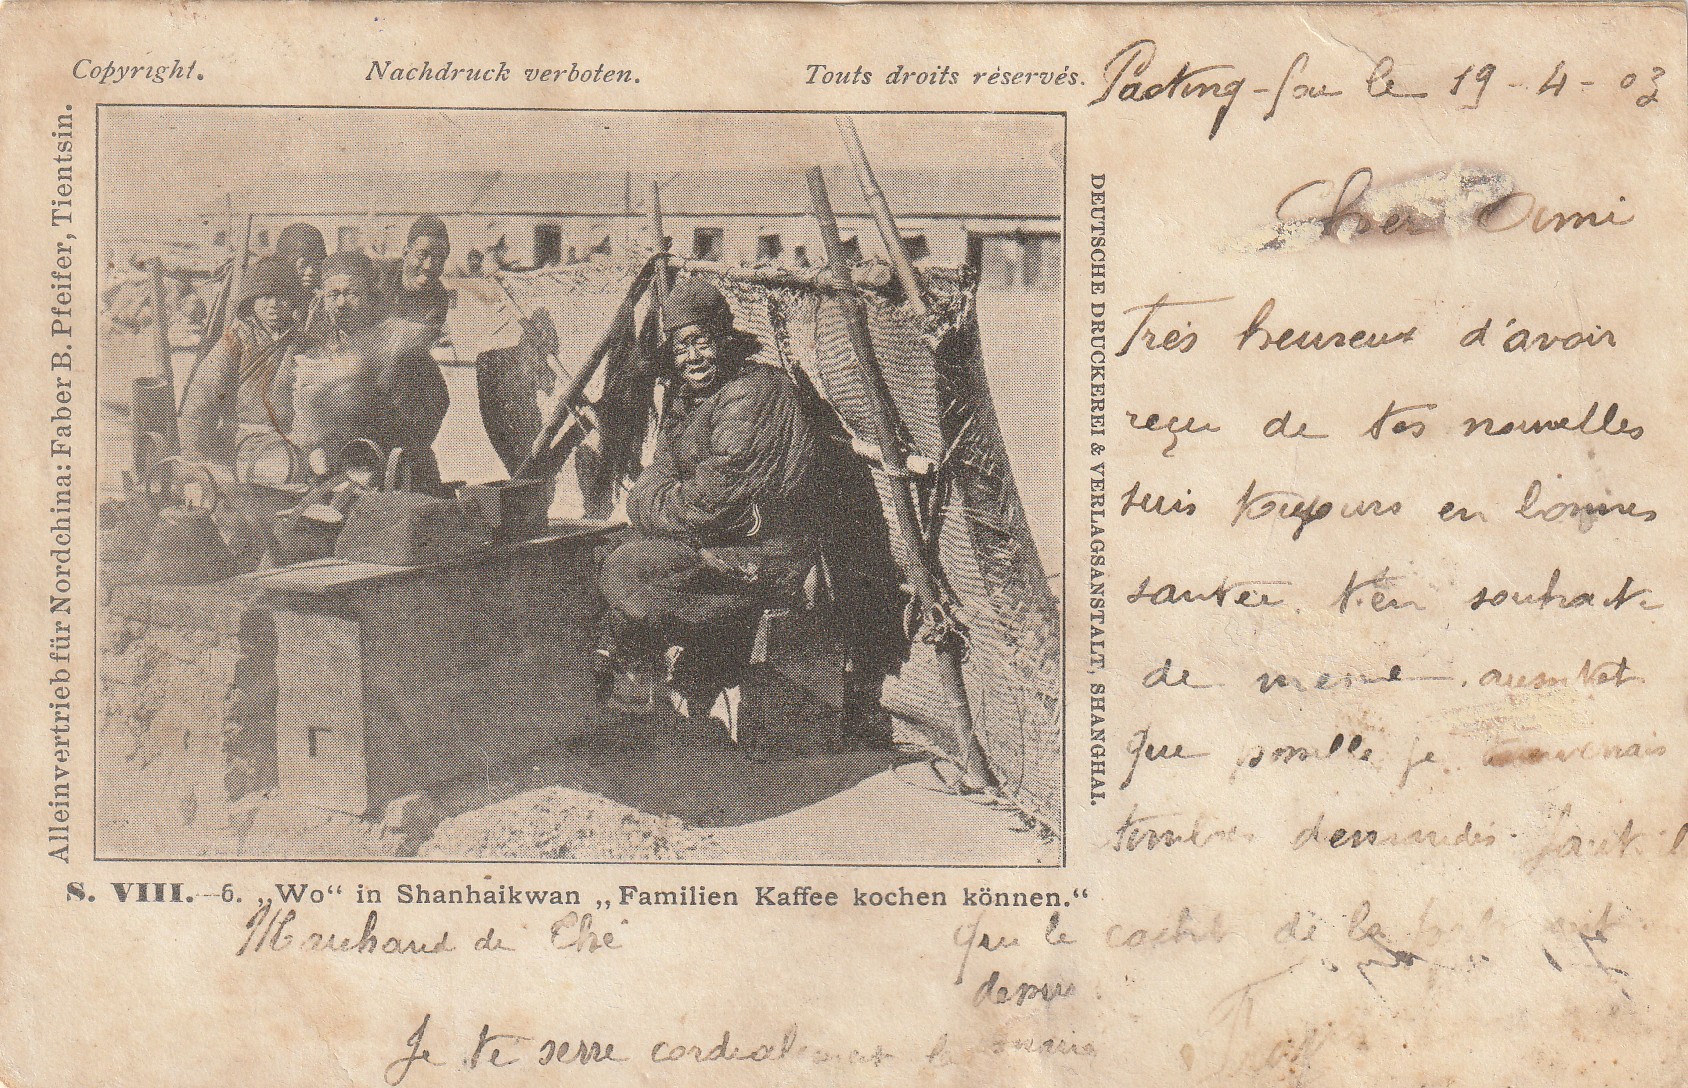 Copyright.
Nachdruck verboten.
Touts droits réservés.
Alleinvertrieb für Nordchina: Faber B. Pfeifer, Tientsin.
DEUTSCHE DRUCKEREI & VERLAGSANSTALT, SHANGHAI.
S. VIII.—6. „Wo“ in Shanhaikwan „Familien Kaffee kochen können.“
Marchand de Thé
Paoting-fou le 19-4-03
Cher Ami
Très heureux d'avoir
reçu de tes nouvelles
suis toujours en bonnes
santée t'en souhaite
de meme aussitot
que possible je
timbres demandés faut
que le cachet de la
dessus
Je te serre cordialement la main